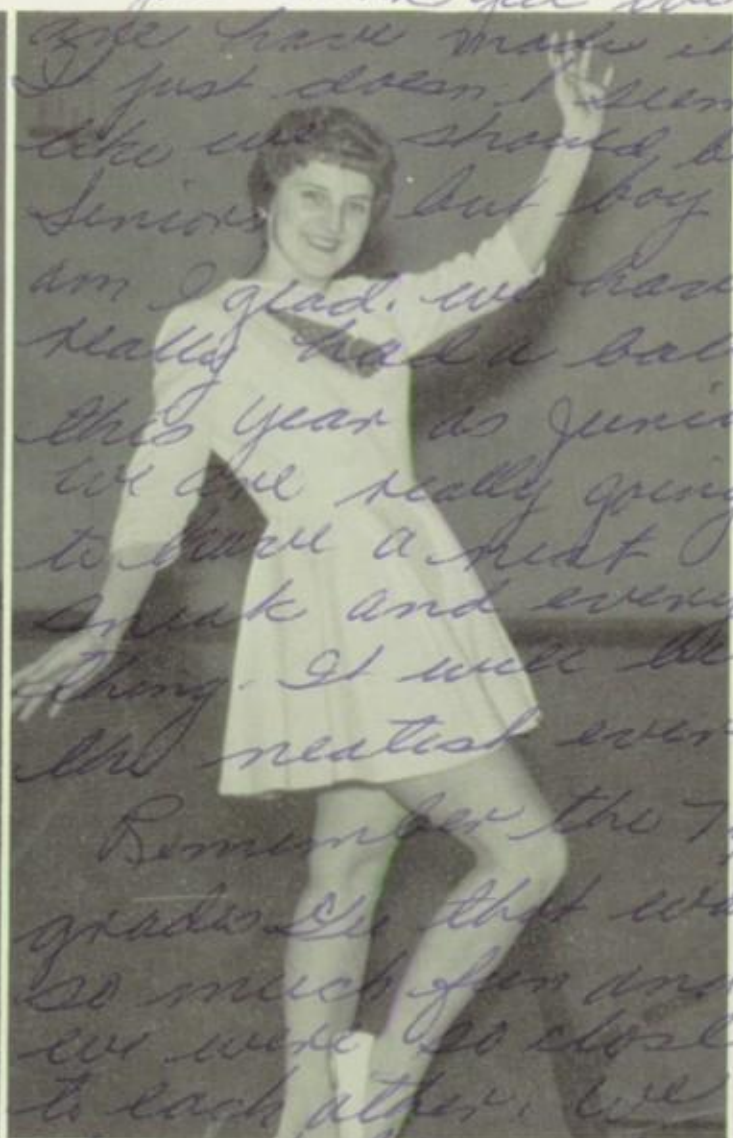 are have made it
I just doesn't seem
like we should b
Seniors but boy
am I glad. we have
really had a bal
this year as Junio
We are really going
to have a neat
sneak and every
thing. It will be
the neatest ever
Remember the 7
grade that wa
so much fun and
we were so close
to each other. We